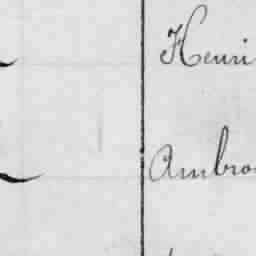 Henri
Ambro